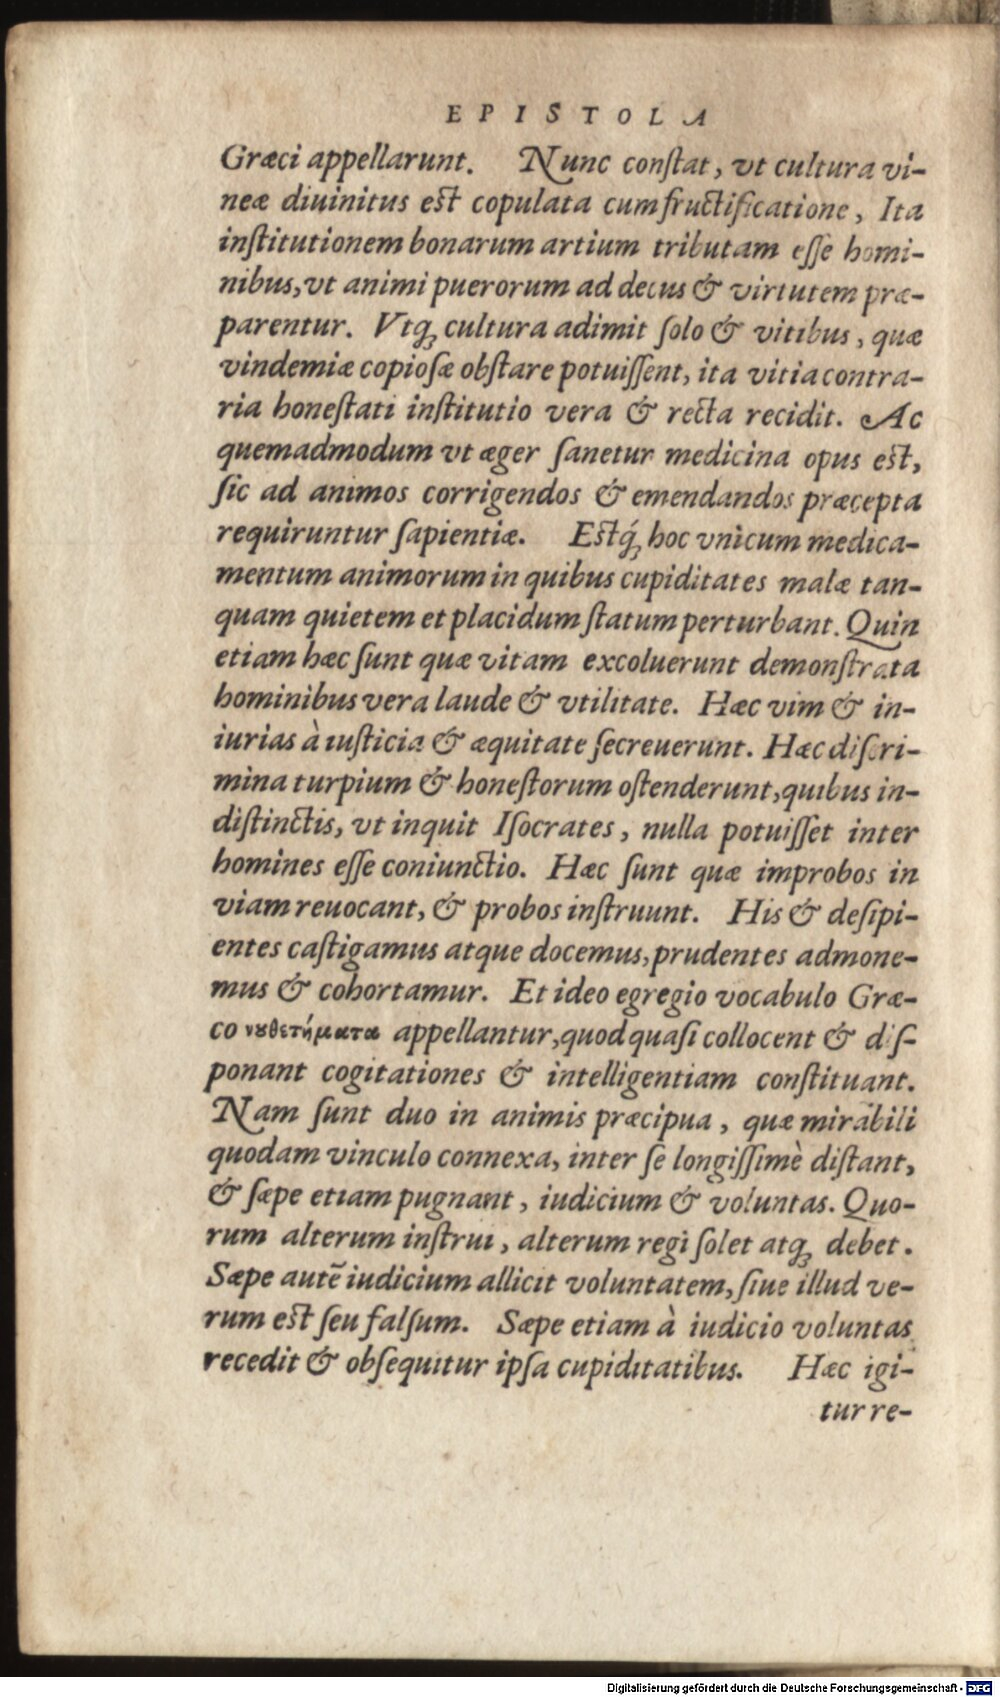 EPISTOLA
Græci appellarunt. Nunc conſtat, vt cultura vi-
neæ diuinitus eſt copulata cum fructificatione, Ita
inſtitutionem bonarum artium tributam eſſe homi-
nibus, vt animi puerorum ad decus & virtutem præ-
parentur. Vtq́; cultura adimit ſolo & vitibus, quæ
vindemiæ copioſæ obſtare potuiſſent, ita vitia contra-
ria honeſtati inſtitutio vera & recta recidit. Ac
quemadmodum vt æger ſanetur medicina opus eſt,
ſic ad animos corrigendos & emendandos præcepta
requiruntur ſapientiæ. Eſtq́; hoc vnicum medica-
mentum animorum in quibus cupiditates malæ tan-
quam quietem et placidum ſtatum perturbant. Quin
etiam hæc ſunt quæ vitam excoluerunt demonſtrata
hominibus vera laude & vtilitate. Hæc vim & in-
iurias à iuſticia & æquitate ſecreuerunt. Hæc diſcri-
mina turpium & honeſtorum oſtenderunt, quibus in-
diſtinctis, vt inquit Iſocrates, nulla potuiſſet inter
homines eſſe coniunctio. Hæc ſunt quæ improbos in
viam reuocant, & probos inſtruunt. His & deſipi-
entes caſtigamus atque docemus, prudentes admone-
mus & cohortamur. Et ideo egregio vocabulo Græ-
co νȣθετήματα appellantur, quod quaſi collocent & diſ-
ponant cogitationes & intelligentiam conſtituant.
Nam ſunt duo in animis præcipua, quæ mirabili
quodam vinculo connexa, inter ſe longiſſimè diſtant,
& ſæpe etiam pugnant, iudicium & voluntas. Quo-
rum alterum inſtrui, alterum regi ſolet atq; debet.
Sæpe autē iudicium allicit voluntatem, ſiue illud ve-
rum eſt ſeu falſum. Sæpe etiam à iudicio voluntas
recedit & obſequitur ipſa cupiditatibus. Hæc igi-
tur re-
Digitalisierung gefördert durch die Deutsche Forschungsgemeinschaft - DFG